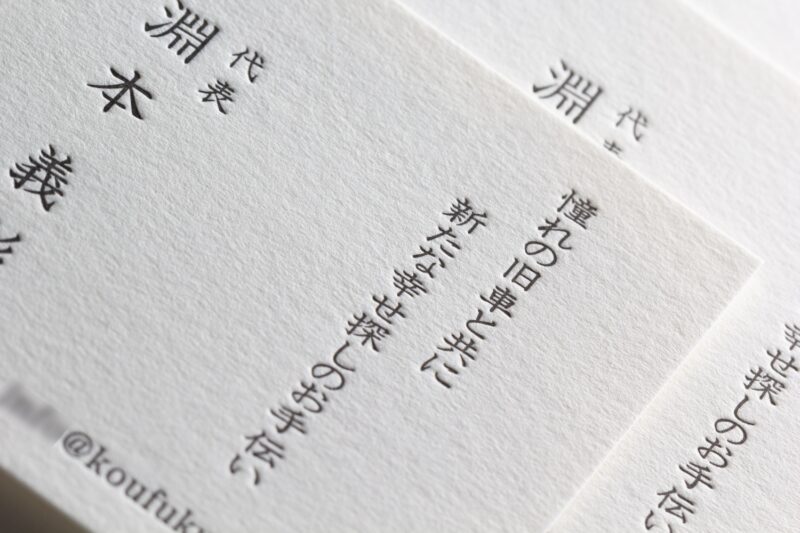 憧れの旧車と共に
新たな幸せ探しのお手伝い
代表
淵本義
@koufuku
淵
代
幸せ探しのお手伝い